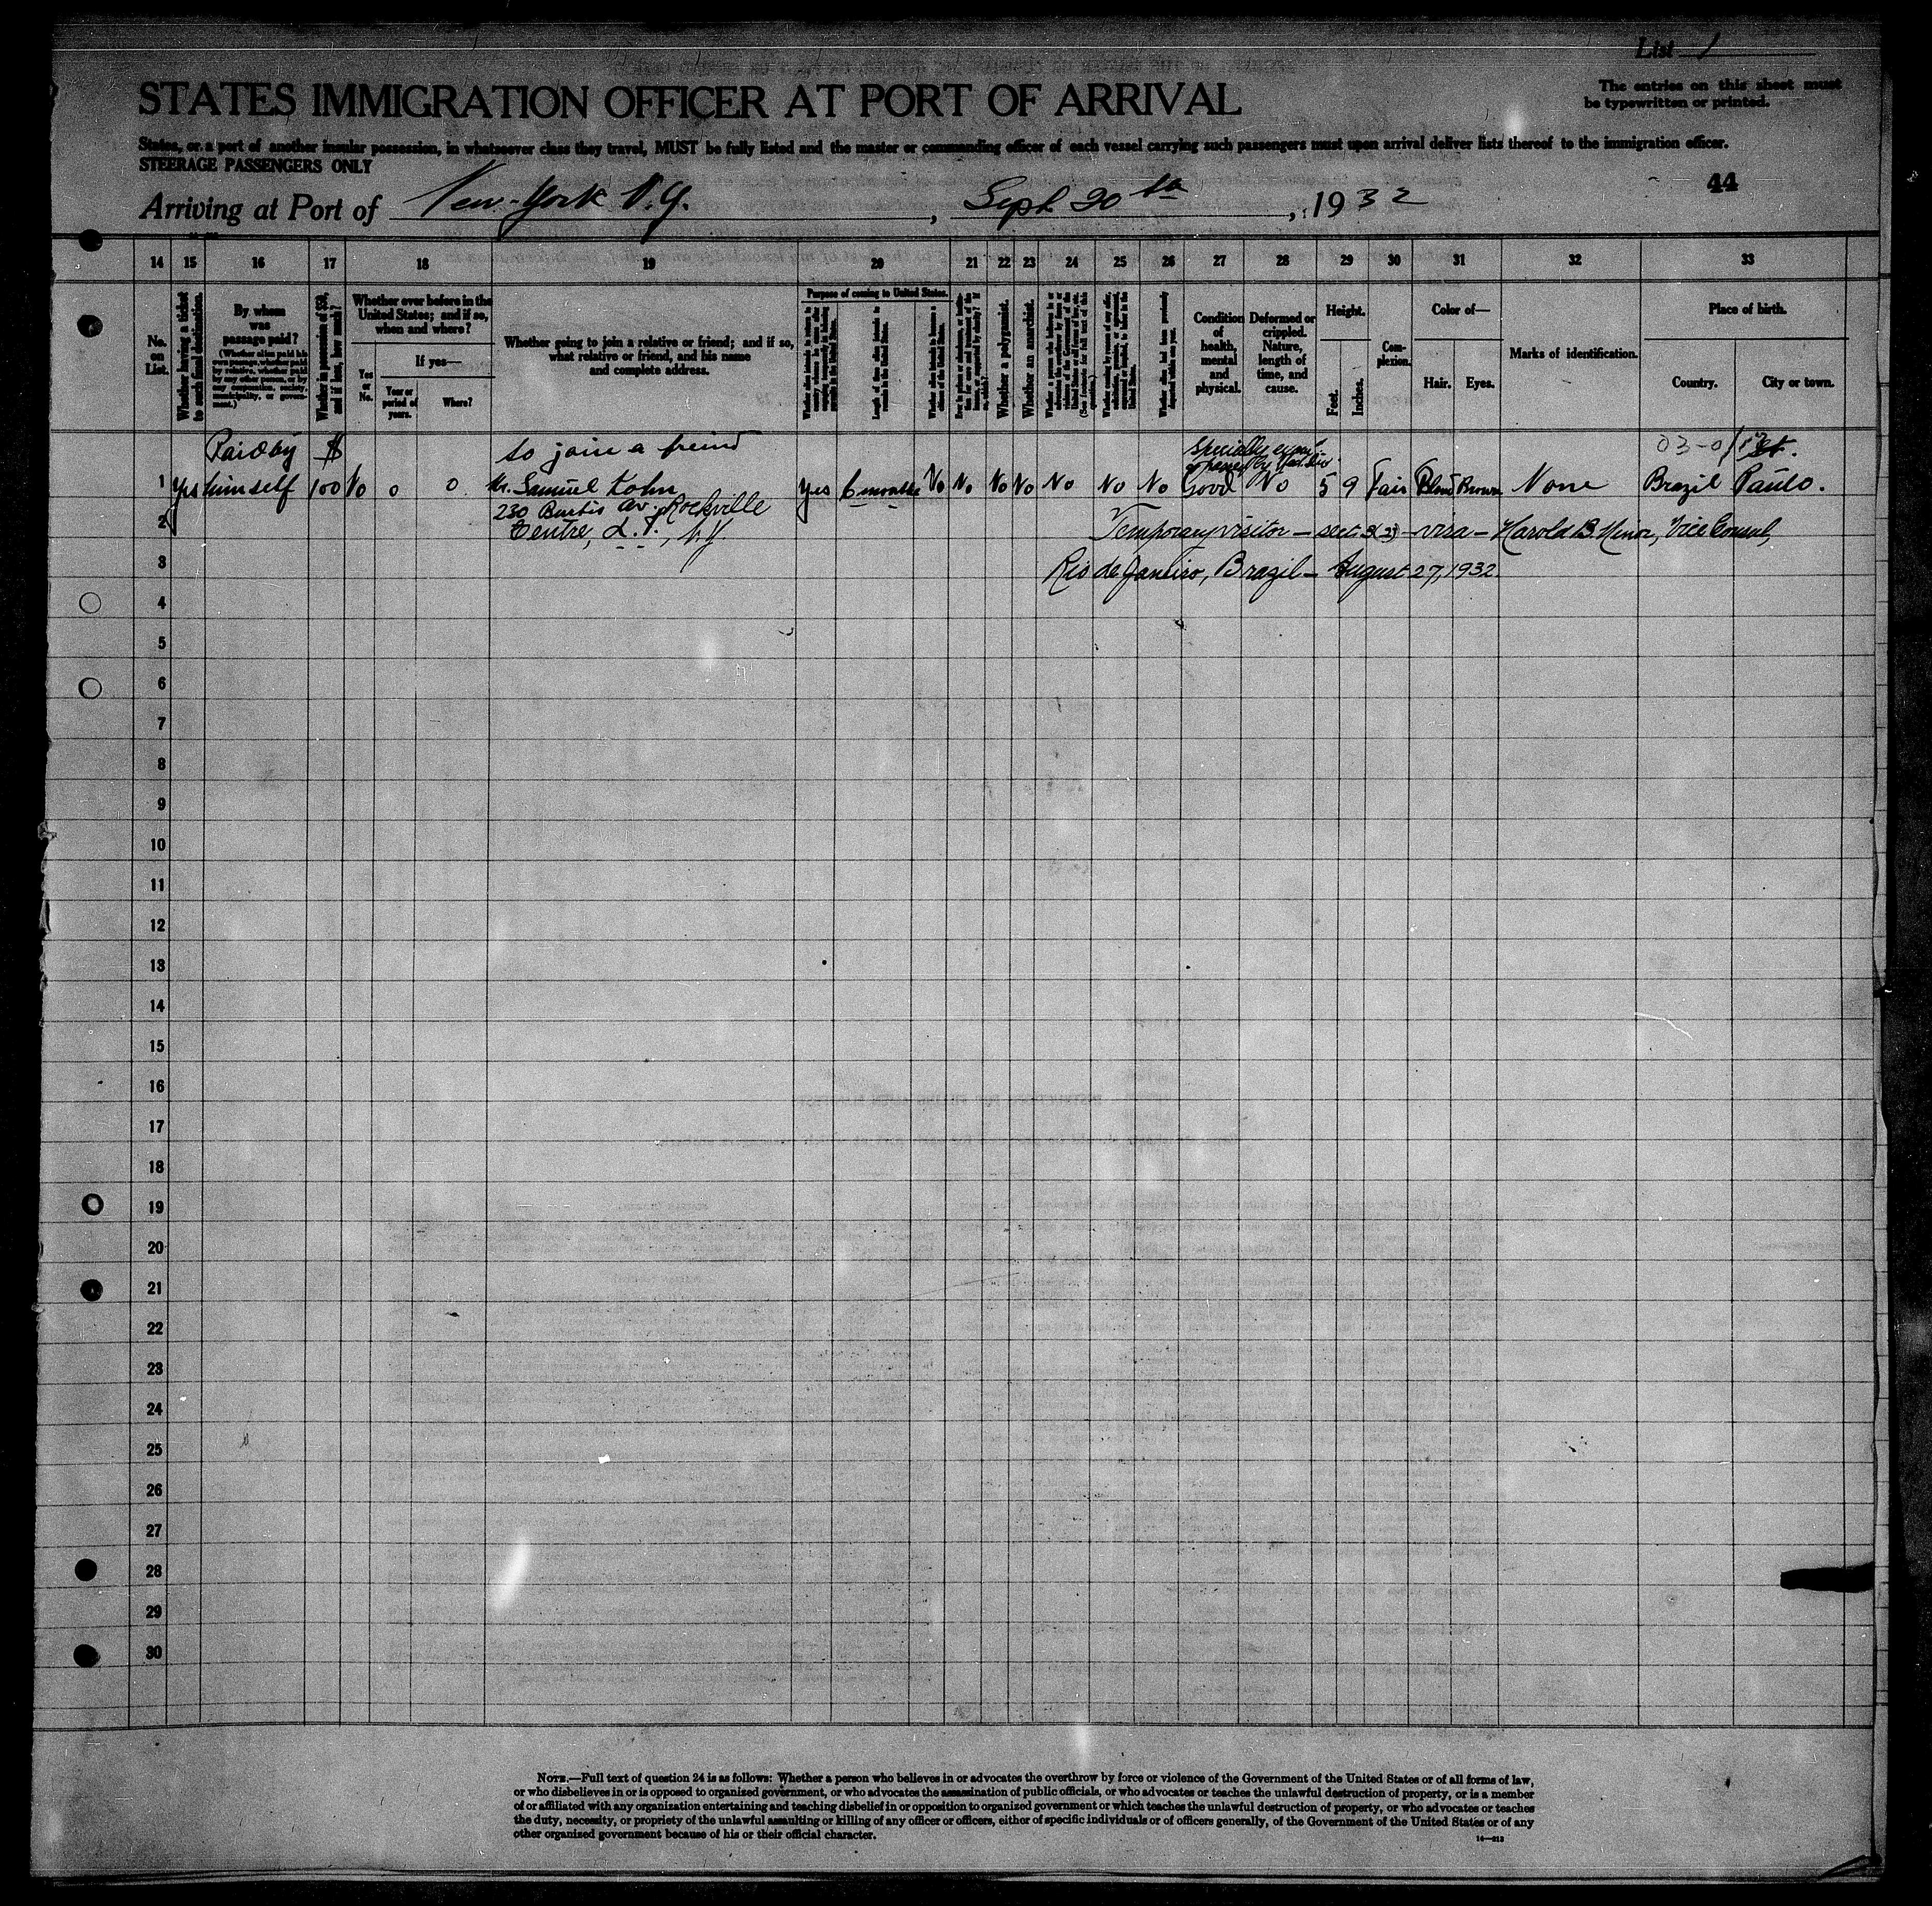 List 1
The entries on this sheet must
be typewritten or printed.
STATES IMMIGRATION OFFICER AT PORT OF ARRIVAL
States, or a port of another insular possession, in whatsoever class they travel, MUST be fully listed and the master or commanding officer of each vessel carrying such passengers must upon arrival deliver lists thereof to the immigration officer.
STEERAGE PASSENGERS ONLY
44
Arriving at Port of New-York N.Y. , Sept 20th , 1932
14 15 16 17 18 19 20 21 22 23 24 25 26 27 28 29 30 31 32 33
No. on List.
Whether having a ticket to such final destination.
By whom was passage paid?
(Whether alien paid his own passage, whether paid by relative, whether paid by any other person, or by any corporation, society, municipality, or government.)
Whether in possession of $50, and if less, how much?
Whether ever before in the United States; and if so, when and where?
Yes or No.
If yes—
Year or period of years.
Where?
Whether going to join a relative or friend; and if so, what relative or friend, and his name and complete address.
Purpose of coming to United States.
Length of time alien intends to remain in the United States.
Whether a polygamist.
Whether an anarchist.
Condition of health, mental and physical.
Deformed or crippled. Nature, length of time, and cause.
Height.
Feet.
Inches.
Complexion.
Color of—
Hair.
Eyes.
Marks of identification.
Place of birth.
Country.
City or town.
Paid by $ to join a freind
1 Yes himself 100 No 0 0 Mr. Samuel Kohn Yes 6 months No No No No No No No Good No 5 9 Fair Blond Brown None Brazil Paulo.
230 Burtis av. Rockville
2 Centre, L.I., N.Y Temporary visitor – sect. 3(2) – visa – Harold B. Minor, Vice Consul,
3 Rio de Janeiro, Brazil – August 27, 1932.
4
5
6
7
8
9
10
11
12
13
14
15
16
17
18
19
20
21
22
23
24
25
26
27
28
29
30
NOTE.—Full text of question 24 is as follows: Whether a person who believes in or advocates the overthrow by force or violence of the Government of the United States or of all forms of law,
or who disbelieves in or is opposed to organized government, or who advocates the assassination of public officials, or who advocates or teaches the unlawful destruction of property, or is a member
of or affiliated with any organization entertaining and teaching disbelief in or opposition to organized government or which teaches the unlawful destruction of property, or who advocates or teaches
the duty, necessity, or propriety of the unlawful assaulting or killing of any officer or officers, either of specific individuals or of officers generally, of the Government of the United States or of any
other organized government because of his or their official character.
14—213